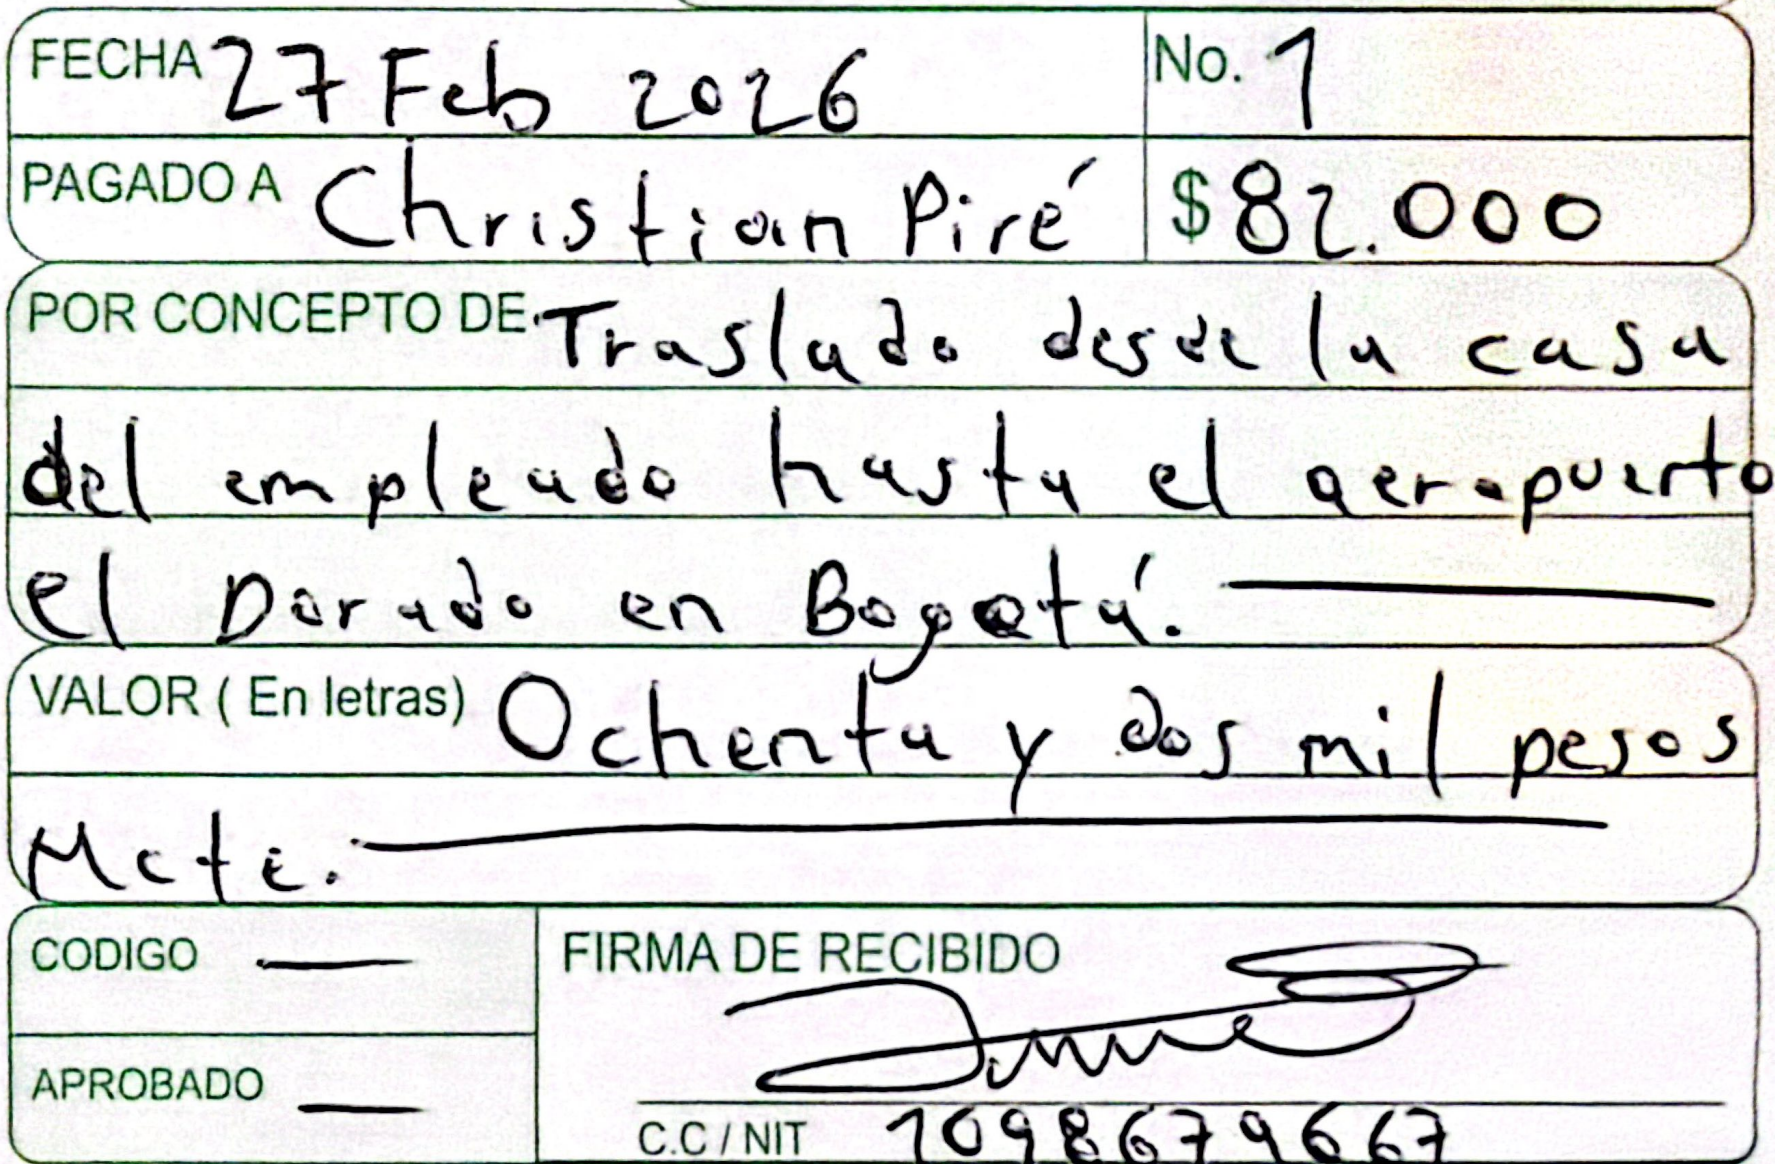 FECHA 27 Feb 2026 No. 1
PAGADO A Christian Piré $ 82.000
POR CONCEPTO DE Traslado desde la casa
del empleado hasta el aeropuerto
el Dorado en Bogotá.
VALOR ( En letras) Ochenta y dos mil pesos
Mcte.
CODIGO —
FIRMA DE RECIBIDO
APROBADO —
C.C / NIT 1098679667